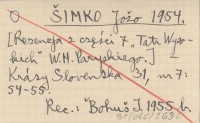 ŠIMKO Jožo 1954.
[Recenzja z części 7 „Tatr Wyso-
kich" W.H. Paryskiego.]
Krásy Slovenska 31, nr 7:
54-55.
Rec.: "Bohuš J. 1955 b.